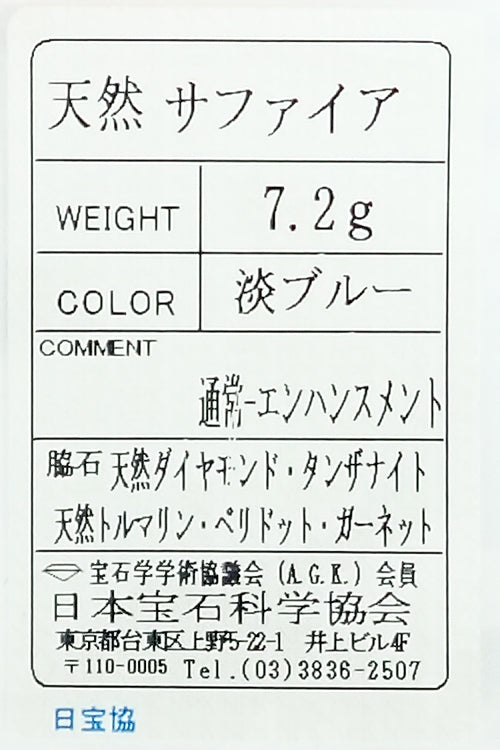 天然 サファイア
WEIGHT 7.2g
COLOR 淡ブルー
COMMENT
通常-エンハンスメント
脇石 天然ダイヤモンド・タンザナイト
天然トルマリン・ペリドット・ガーネット
宝石学学術協議会 (A.G.K.) 会員
日本宝石科学協会
東京都台東区上野5-22-1 井上ビル4F
〒110-0005 Tel.(03)3836-2507
日宝協